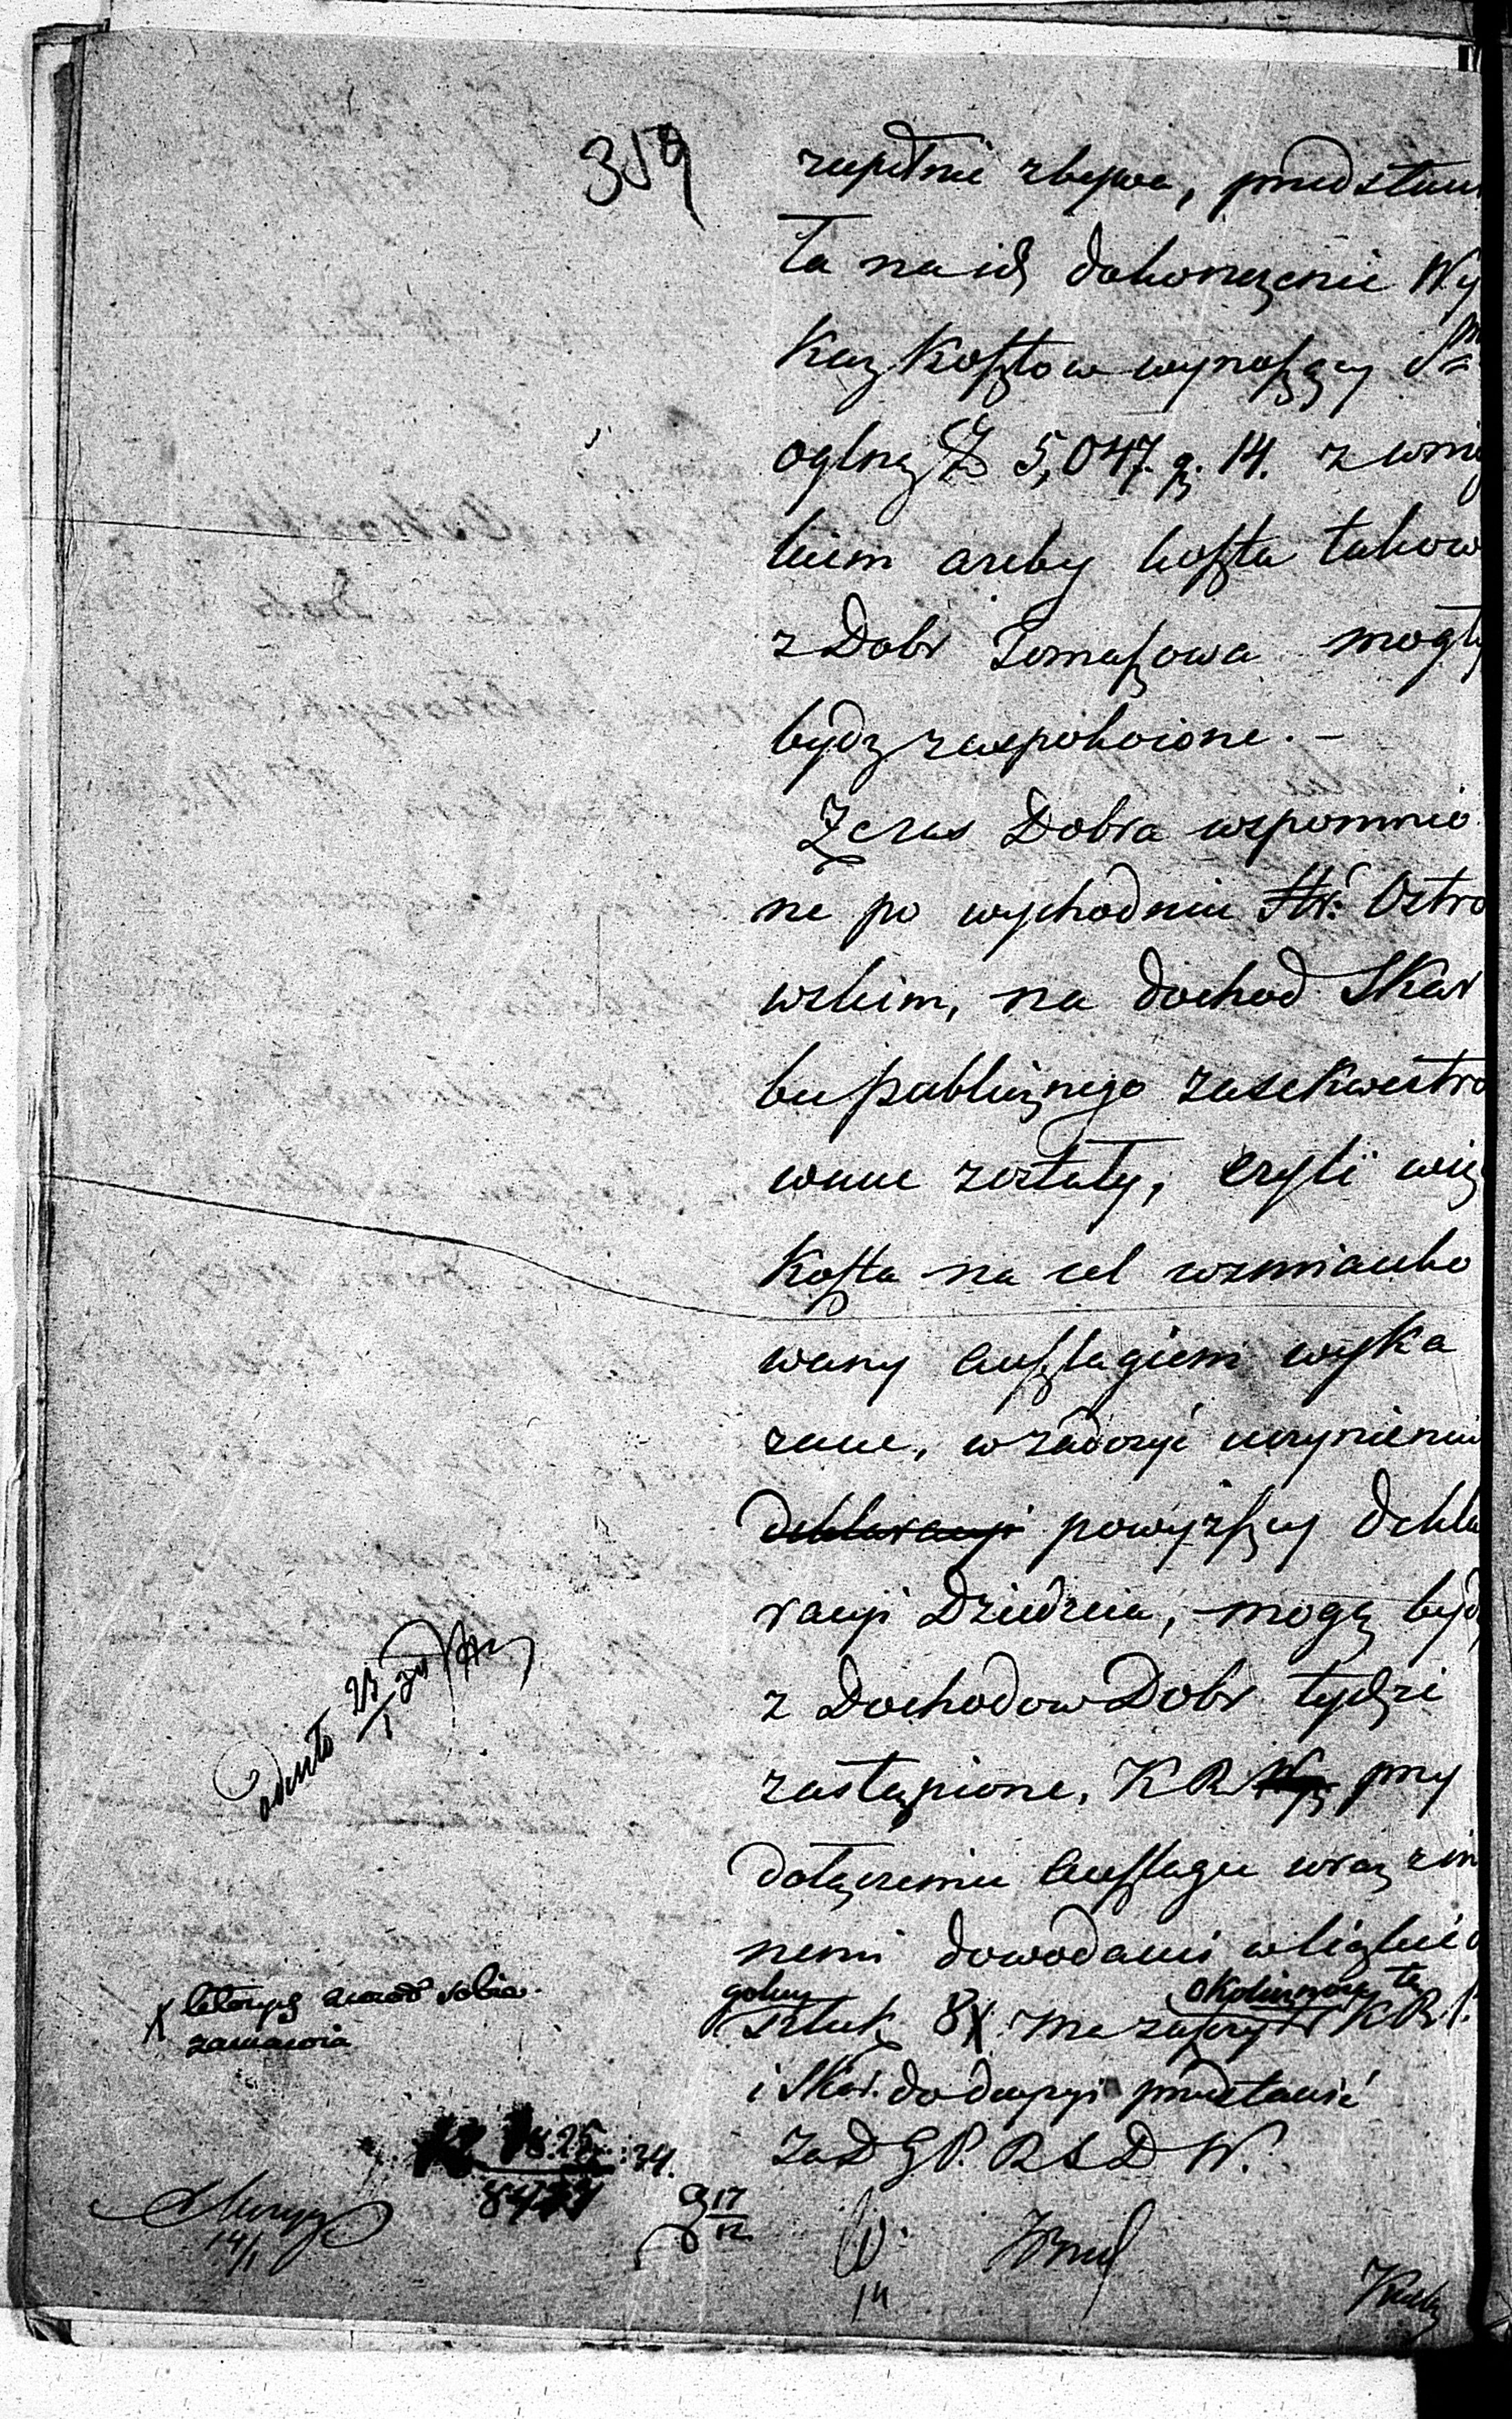 359
zupełnie zbywa, przedstawi
ła na ich dokończenie Wy
kaz kosztow wynoszący
ogólną Zł 5,047. g. 14. z wnio
kiem azeby koszta takow
z Dobr Tomaszowa mogły
bydz zaspokoione. –
Że zas Dobra wspomnio
ne po wychodźcu Hr. Ostro
wskim, na dochod Skar
bu publicznego zasekwestro
wane zostały, czyli więc
koszta na cel wzmianko
wany anszlagiem wyka
zane, w zadosyć uczynieniu
deklaracyi powyższey dekla
racyi Dziedzica, mogą bydź
z Dochodow Dobr tychże
zastąpione, K R przy
dołączeniu anszlagu wraz z in
nemi dowodami w liczbie o
golney
sztuk 8 X. ma zaszczyt K R P.
i Skar. do decyzyi przedstawić
Za D G P. R S D W.
X ktorych zwrot sobie
zamawia
14/1
9 17/12
14